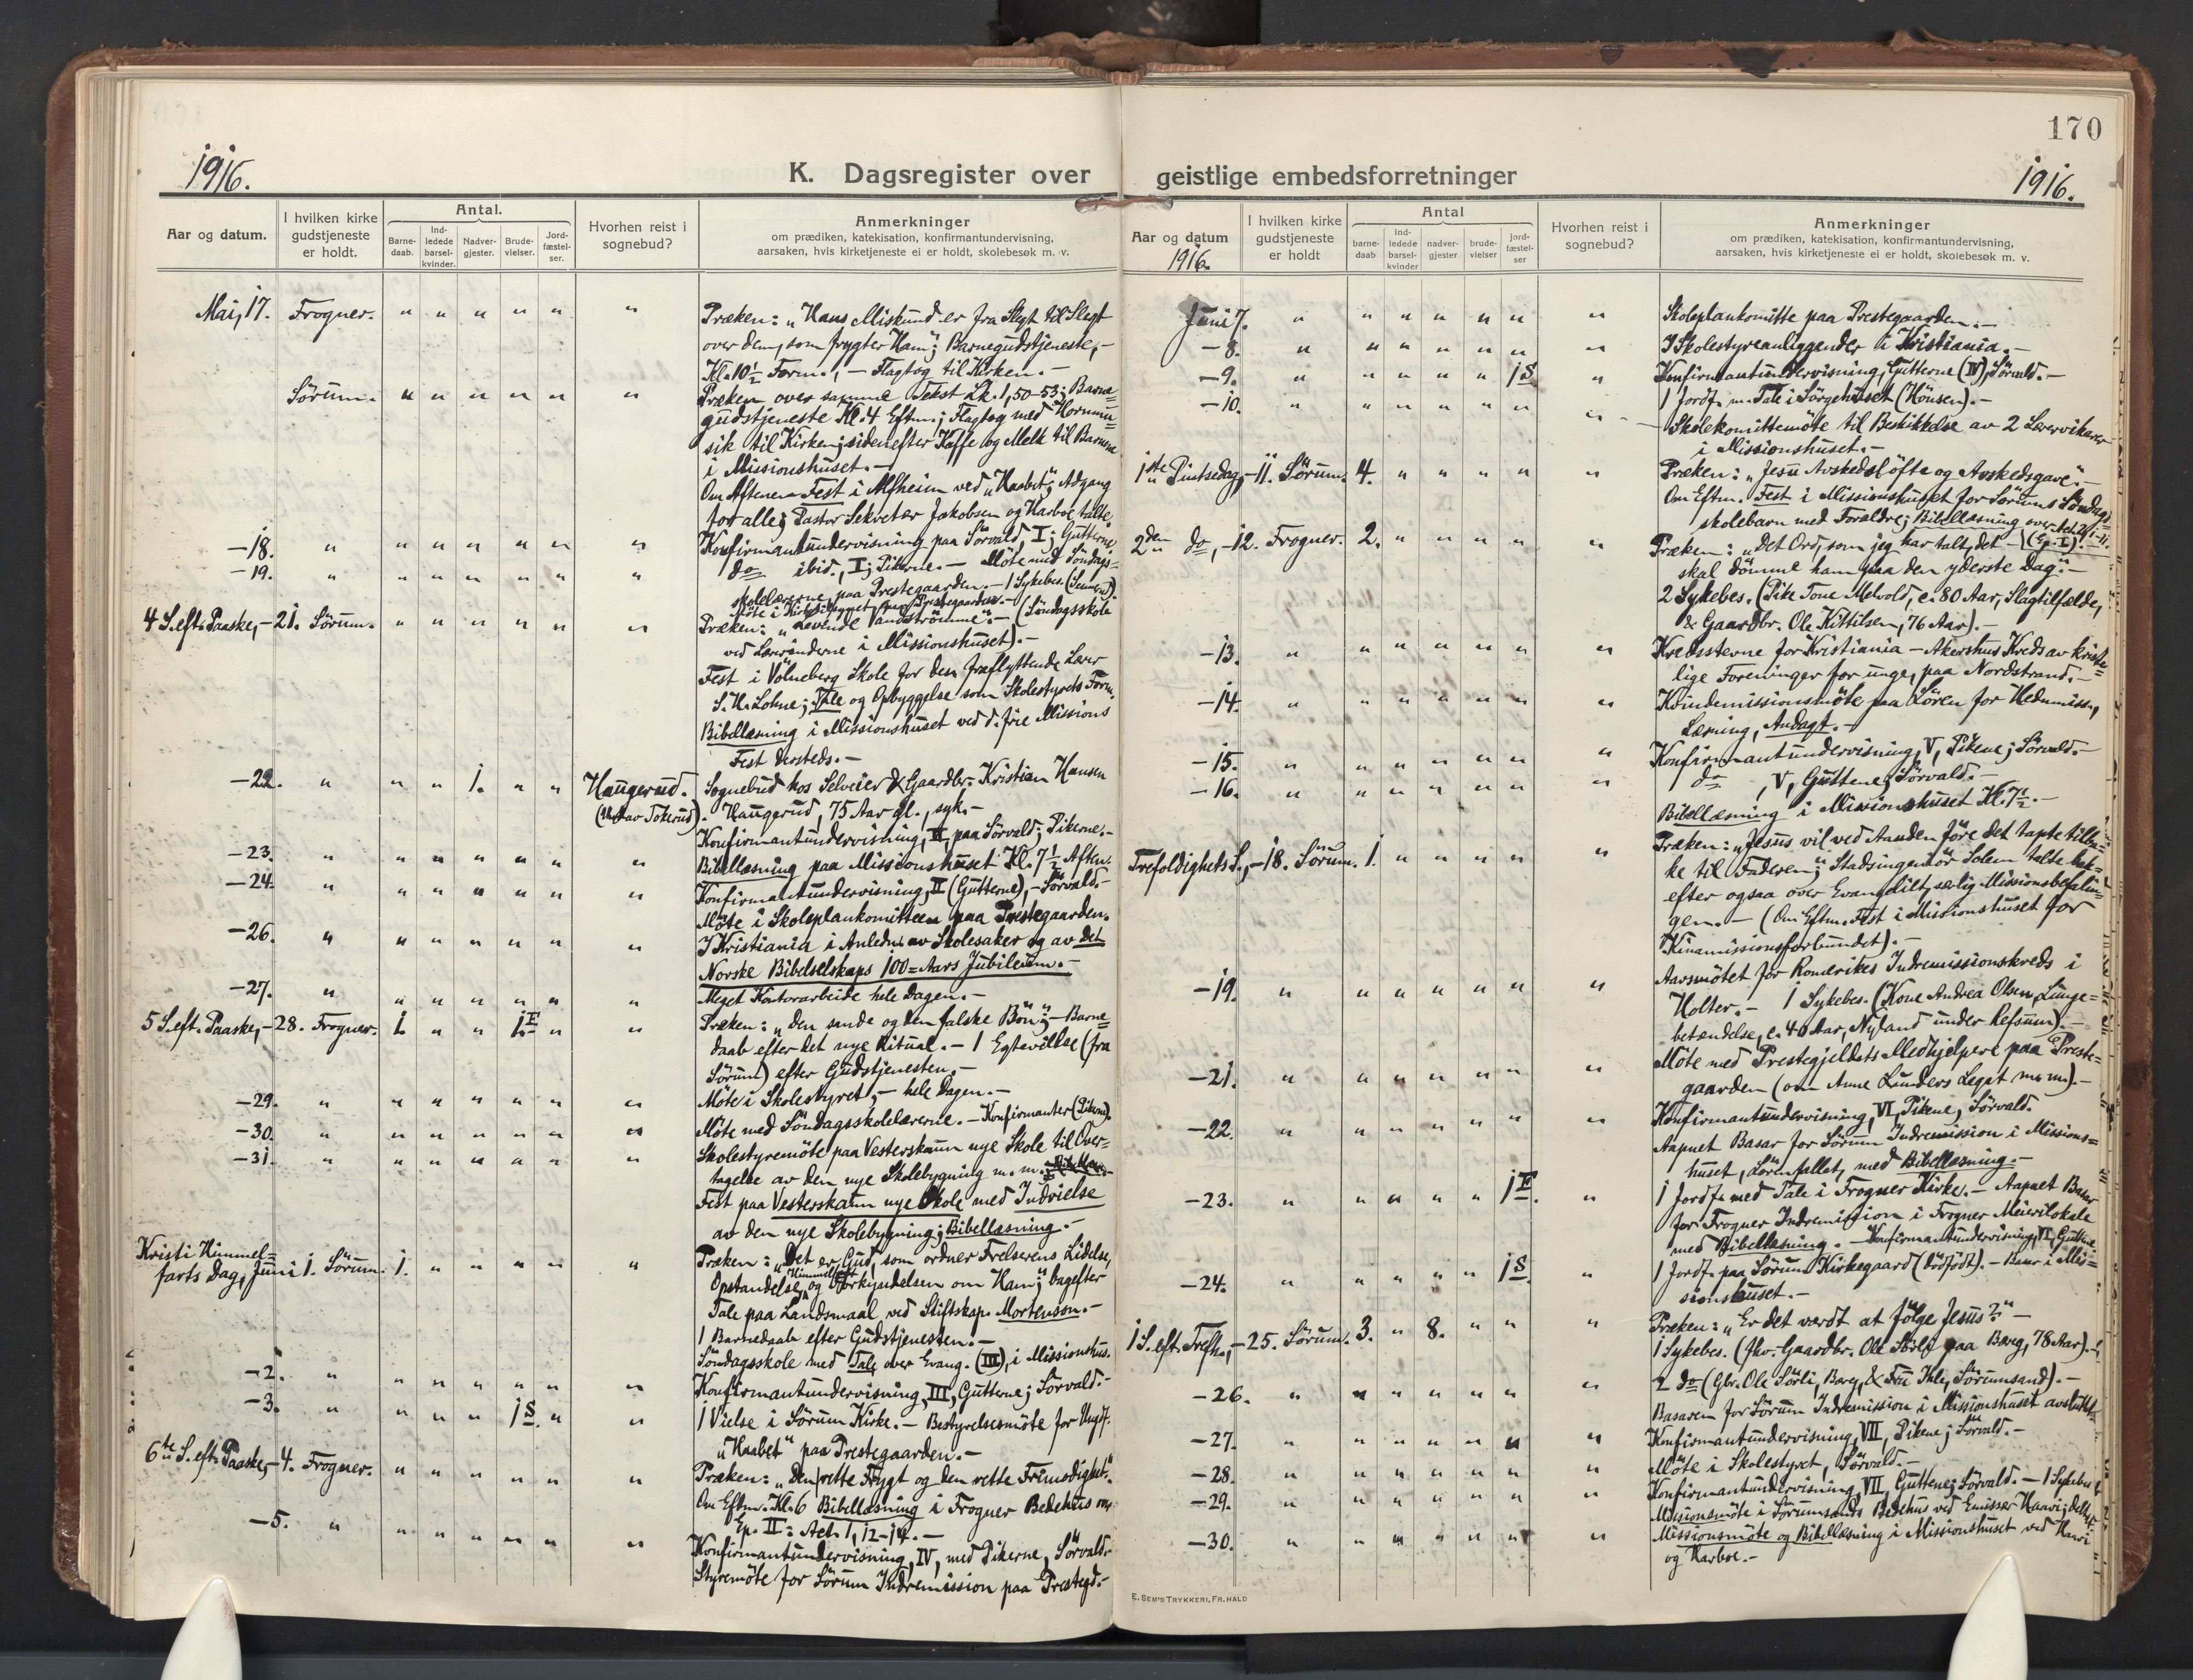 1916.
K. Dagsregister over
Aar og datum.
I hvilken kirke gudstjeneste er holdt.
Antal.
Barne-daab.
Ind-ledede barsel-kvinder.
Nadver-gjester.
Brude-vielser.
Jord-fæstel-ser.
Hvorhen reist i sognebud?
Anmerkninger
om prædiken, katekisation, konfirmantundervisning,
aarsaken, hvis kirketjeneste ei er holdt, skolebesøk m. v.
Mai, 17. Frogner. " " " " " " Præken: „Hans Miskund er fra Slegt til Slegt
over dem, som frygter Ham"; Barnegudstjeneste,-
Kl. 10½ Form., - Flagtog til Kirken.-
Sörum. " " " " " " Præken over samme Tekst Lk. 1, 50-53; Barne=
gudstjeneste Kl. 4 Eftm.; Flagtog med Hornmu=
sik til Kirken; sidenefter Kaffe og Melk til Barnene
i Missionshuset.-
Om Aftenen Fest i Alfheim ved „Haabet"; Adgang
for alle; Pastor Sekretær Jakobsen og Harboe talte.
-18. " " " " " " " Konfirmantundervisning paa Sörvald, I; Gutterne.
-19. " " " " " " " do ibid., I; Pikerne.- Möte med Söndags=
skolelærerne paa Prestegaarden.- 1 Sykebes.
Præstegaarden.-
4 S. eft. Paaske, -21. Sörum. " " " " " " Præken: „Levende Vandströmme".- (Söndagsskole
ved Lærerinderne i Missionshuset).-
Fest i Völneberg Skole for den fraflyttende Lærer
S. H. Lohne; Tale og Opbyggelse som Skolestyrets Form.
Bibellæsning i Missionshuset ved d. frie Missions
Fest dersteds.-
-22. " " " 1. " " Haugerud. Sognebud hos Selveier & Gaardbr. Kristian Hansen
Haugerud, 75 Aar gl., syk.-
Konfirmantundervisning, II, paa Sörvald; Pikerne.-
-23. " " " " " " " Bibellæsning paa Missionshuset Kl. 7½ Aften.
-24. " " " " " " " Konfirmantundervisning, II (Gutterne), - Sörvald.-
Möte i Skoleplankomitteen paa Prestegaarden.
-26. " " " " " " " I Kristiania i Anledn. av Skolesaker og av det
Norske Bibelselskaps 100=Aars Jubilæum.-
-27. " " " " " " " Meget Kontorarbeide hele Dagen.-
5 S. eft. Paaske, -28. Frogner. 1. " " 1 F. " " Præken: „Den sande og den falske Bön";- Barne=
daab efter det nye Ritual.- 1 Egtevielse (fra
Sörum) efter Gudstjenesten.-
-29. " " " " " " " Möte i Skolestyret, - hele Dagen.-
-30. " " " " " " " Möte med Söndagsskolelærerne.- Konfirmanter (Pikerne).
-31. " " " " " " " Skolestyremöte paa Vesterskaun nye Skole til Over=
tagelse av den nye Skolebygning m. m.
Fest paa Vesterskaun nye Skole med Indvielse
av den nye Skolebygning; Bibellæsning.-
Kristi Himmel=
farts Dag, Juni 1. Sörum. 1. " " " " " Præken: „Det er Gud, som ordner Frelserens Lidelse,
Opstandelse, Himmelf. og Forkyndelsen om Ham"; bagefter
Tale paa Landsmaal ved Stiftskap. Mortensson.-
1 Barnedaab efter Gudstjenesten.-
Söndagsskole med Tale over Evang. (III), i Missionshus.
-2. " " " " " " " Konfirmantundervisning, III, Gutterne; Sörvald.-
-3. " " " " 1 S. " " 1 Vielse i Sörum Kirke.- Bestyrelsesmöte for Ungdf.
„Haabet" paa Prestegaarden.-
6te S. eft. Paaske, -4. Frogner. " " " " " " Præken: „Den rette Frygt og den rette Fremodighet".
Om Eftm. Kl. 6 Bibellæsning i Frogner Bedehus over
Ep. II: Act. 1, 12-14.-
-5. " " " " " " " Konfirmantundervisning, IV, med Pikerne, Sörvald.-
Styremöte for Sörum Indremission paa Prestegd.-
170
geistlige embedsforretninger
1916.
Aar og datum
1916.
I hvilken kirke gudstjeneste er holdt
Antal
barne-daab
ind-ledede barsel-kvinder
nadver-gjester
brude-vielser
jord-fæstel-ser
Hvorhen reist i sognebud?
Anmerkninger
om prædiken, katekisation, konfirmantundervisning,
aarsaken, hvis kirketjeneste ei er holdt, skolebesøk m. v.
Juni 7. " " " " " " " Skoleplankomitte paa Prestegaarden.-
-8. " " " " " " " I Skolestyreanliggender i Kristiania.-
-9. " " " " " 1 S. " Konfirmantundervisning, Gutterne (IV), Sörvald.-
1 Jordf. m. Tale i Sörgehuset
-10. " " " " " " " Skolekomittemöte til Beskikkelse av 2 Lærervikarer
i Missionshuset.-
1ste Pintsedag, -11. Sörum. 4. " " " " " Præken: „Jesu Avskedslöfte og Avskedsgave".-
Om Eftm. Fest i Missionshuset for Sörums Söndags=
skolebarn med Forældre; Bibellæsning over
2den do, -12. Frogner. 2. " " " " " Præken: „Det Ord, som jeg har talt, det
skal dömme ham paa den yderste Dag".-
2 Sykebes. (Pike Tone Melvold, c. 80 Aar, Slagtilfælde,
& Gaardbr. Ole Kittilsen, 76 Aar).-
-13. " " " " " " " Kredsstevne for Kristiania - Akershus Kreds av kriste=
lige Foreninger for unge, paa Nordstrand.-
-14. " " " " " " " Kvindemissionsmöte paa Lören for Hedmiss.,
Læsning, Andagt.-
-15. " " " " " " " Konfirmantundervisning, V, Pikene; Sörvald.-
-16. " " " " " " " do, V, Guttene, Sörvald.-
Bibellæsning i Missionshuset Kl. 7½.-
Trefoldighets S., -18. Sörum. 1. " " " " " Præken: „Jesus vil ved Aanden före det tapte tilba=
ke til Faderen"; Stadsingeniör Solem talte bak=
efter ogsaa over Evangeliet, særlig Missionsbefalin=
gen.- (Om Eftm. Fest i Missionshuset for
Kinamissionsforbundet).-
-19. " " " " " " " Aarsmötet for Romerikes Indremissionskreds i
Holter.- 1 Sykebes. (Kone Andrea Olsen, Lunge=
betændelse, c. 40 Aar, Nyland under Refsum).-
-21. " " " " " " " Möte med Prestegjeldets Medhjelpere paa Preste=
gaarden (om Anne Lunders Legat m. m.).-
Konfirmantundervisning, VI, Pikene, Sörvald.
-22. " " " " " " " Aapnet Basar for Sörum Indremission i Missions=
huset, Sörenfallet, med Bibellæsning.-
-23. " " " " " 1 F. " 1 Jordf. med Tale i Frogner Kirke.- Aapnet Basar
for Frogner Indremission i Frogner Meierilokale
med Bibellæsning.- Konfirmantundervisning, VI, Guttene.
-24. " " " " " 1 S. " 1 Jordf. paa Sörum Kirkegaard (dödfödt).- Basar i Mis=
sionshuset.-
1 S. eft. Trefh., -25. Sörum. 3. " 8. " " " Præken: „Er det værdt at fölge Jesus?"-
1 Sykebes. (fhv. Gaardbr. Ole Sörli paa Berg, 78 Aar).-
-26. " " " " " " " 2 do (Gbr. Ole Sörli, Berg, & Fru Ihle, Sörumsand).-
Basaren for Sörum Indremission i Missionshuset avsluttet.
-27. " " " " " " " Konfirmantundervisning, VII, Pikene; Sörvald.-
-28. " " " " " " " Möte i Skolestyret, Sörvald.-
-29. " " " " " " " Konfirmantundervisning, VII, Guttene; Sörvald.- 1 Sykebes.
Missionsmöte i Sörumsands Bedehus ved Emissær Haavi;
-30. " " " " " " " Missionsmöte og Bibellæsning i Missionshuset ved Haavi
og Harboe.-
E. SEM'S TRYKKERI, FR.HALD